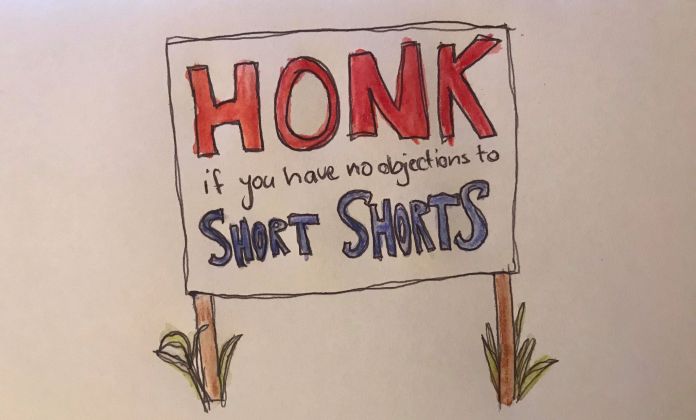 HONK
if you have no objections to
SHORT SHORTS